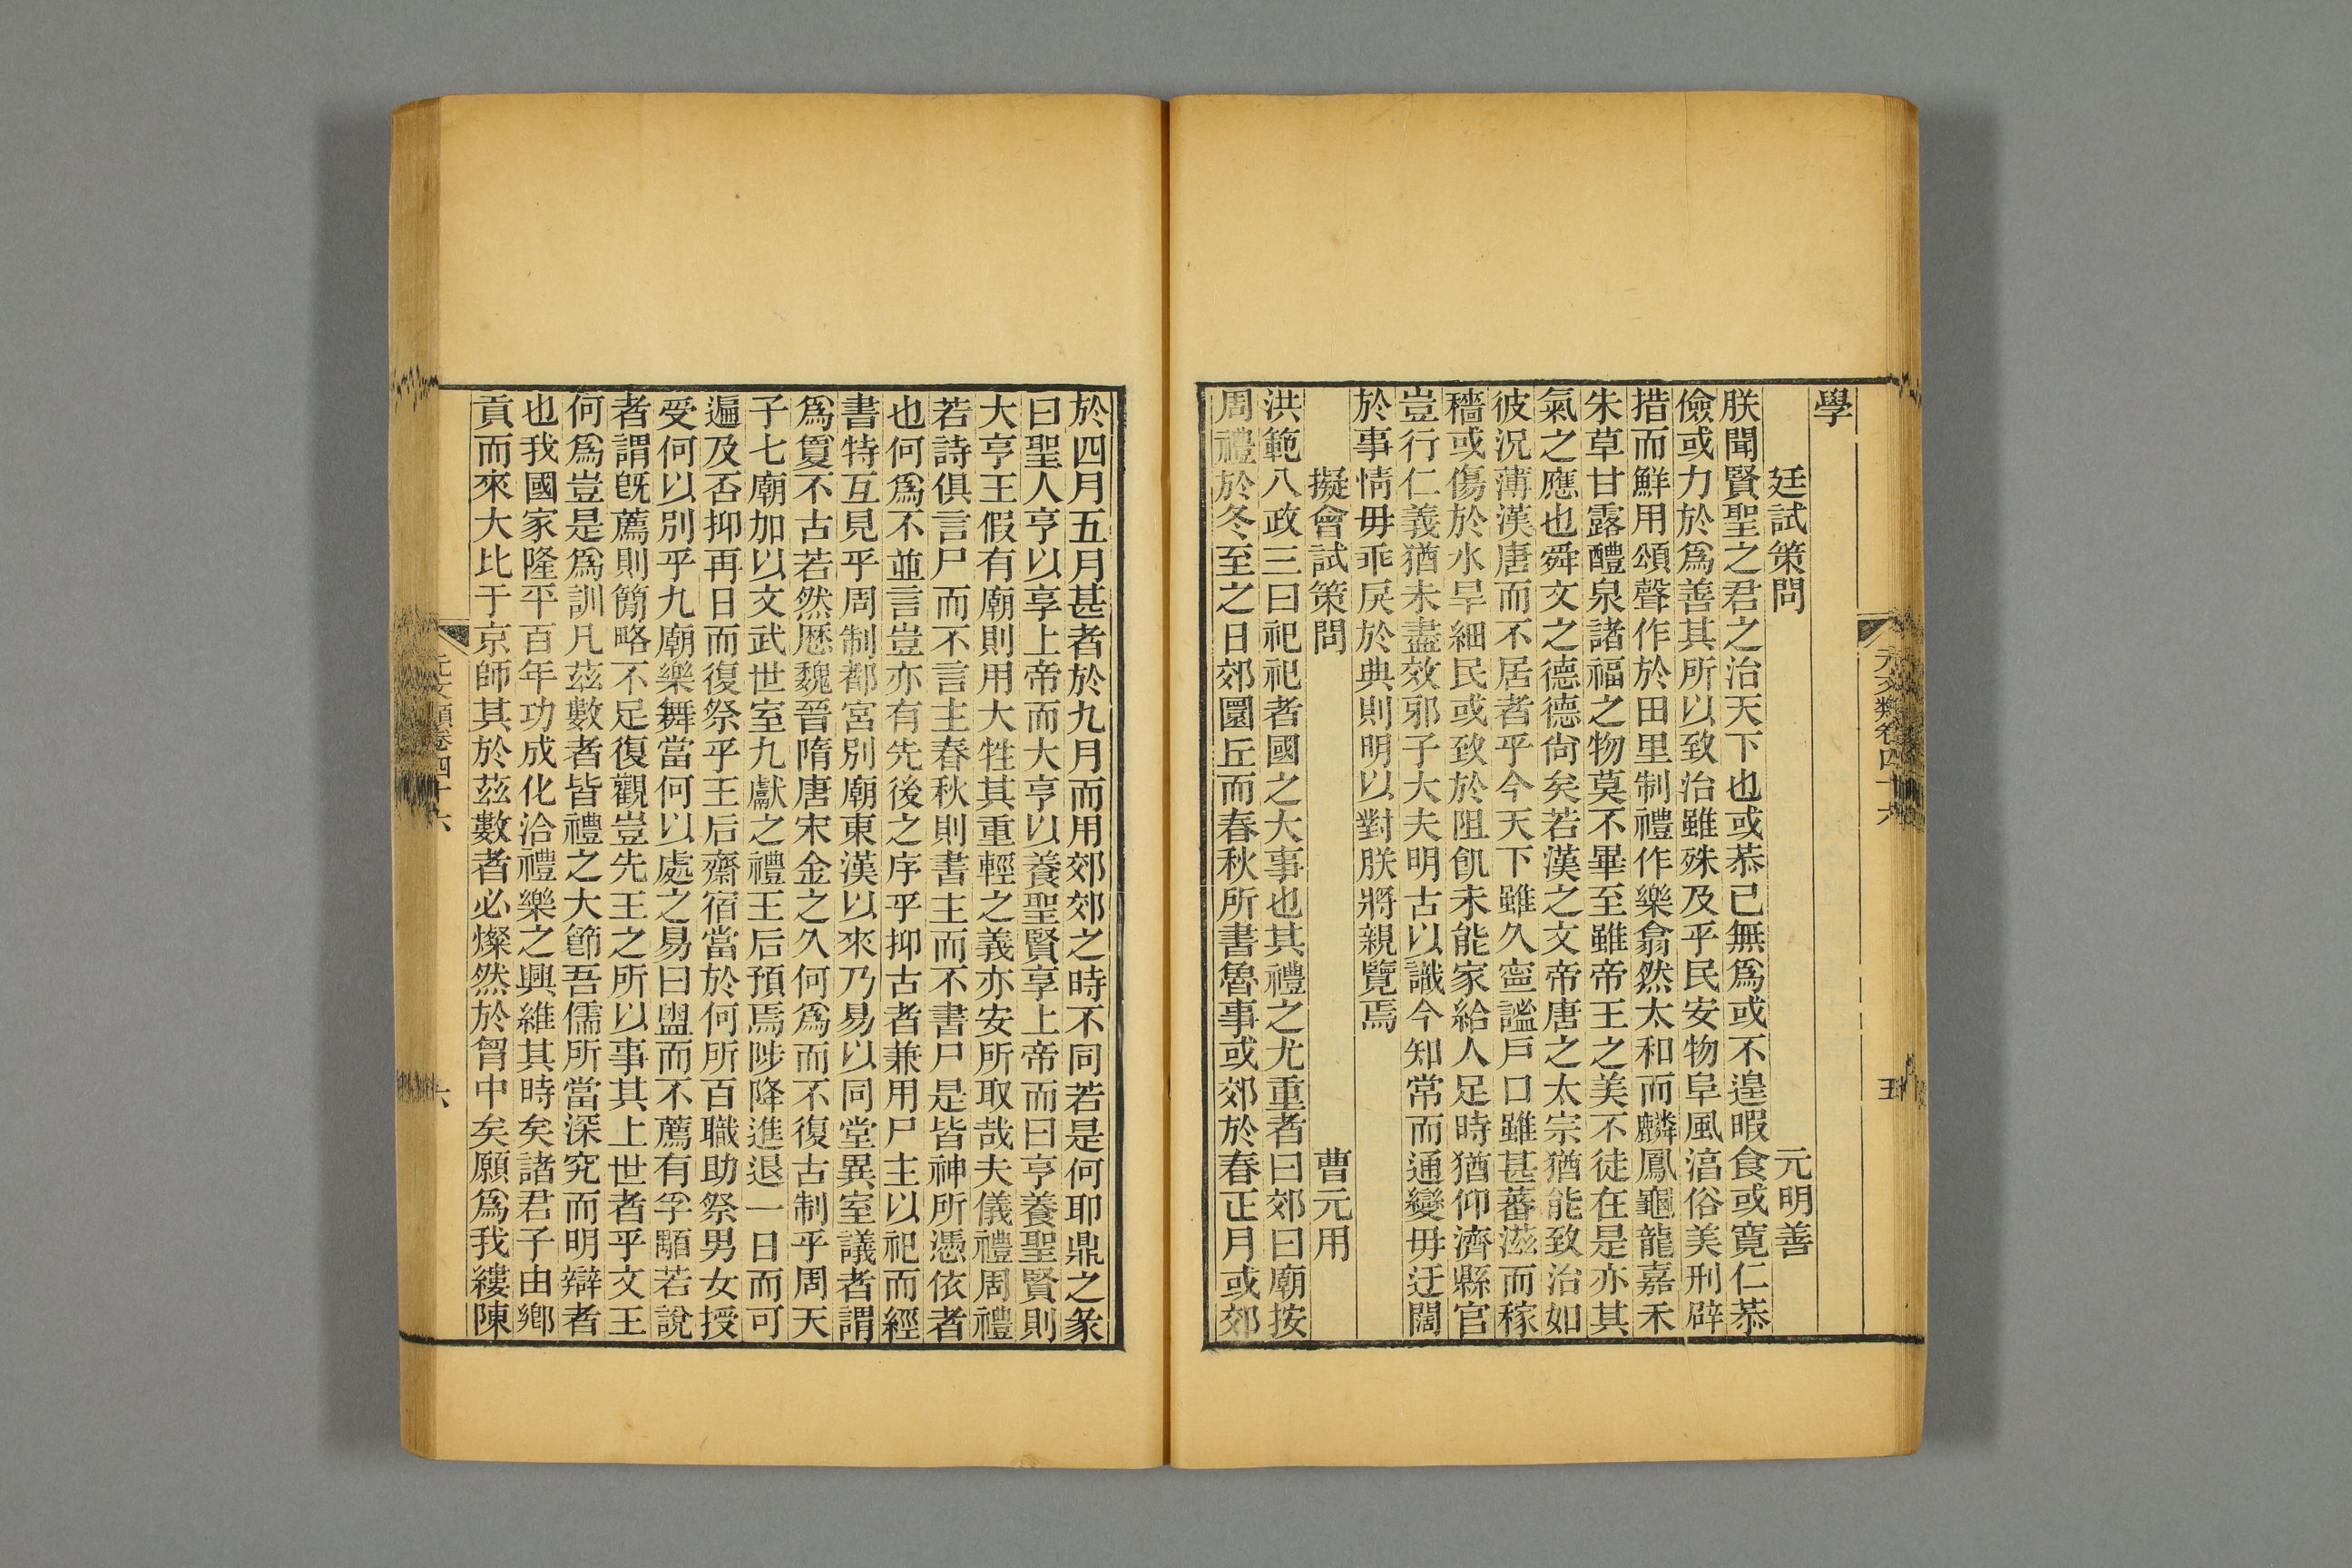 元文類卷四十六
五
學
廷試策問
元明善
朕聞賢聖之君之治天下也或恭己無爲或不遑暇食或寛仁恭
儉或力於爲善其所以致治雖殊及乎民安物阜風淊俗美刑辟
措而鮮用頌聲作於田里制禮作樂翕然太和而麟鳳龜龍嘉禾
朱草甘露醴泉諸福之物莫不畢至雖帝王之美不徒在是亦其
氣之應也舜文之德德尙矣若漢之文帝唐之太宗猶能致治如
彼況薄漢唐而不居者乎今天下雖久寍謐戸口雖甚蕃滋而稼
穡或傷於水旱細民或致於阻飢未能家給人足時猶仰濟縣官
豈行仁義猶未盡效邪子大夫明古以識今知常而通變毋迂闊
於事情毋乖戾於典則明以對朕將親覽焉
擬會試策問
曹元用
洪範八政三曰祀祀者國之大事也其禮之尤重者曰郊曰廟按
周禮於冬至之日郊圜丘而春秋所書魯事或郊於春正月或郊
於四月五月甚者於九月而用郊郊之時不同若是何耶鼎之彖
曰聖人亨以享上帝而大亨以養聖賢享上帝而曰亨養聖賢則
大亨王假有廟則用大牲其重輕之義亦安所取哉夫儀禮周禮
若詩俱言尸而不言主春秋則書主而不書尸是皆神所憑依者
也何爲不並言豈亦有先後之序乎抑古者兼用尸主以祀而經
書特互見乎周制都宮別廟東漢以來乃易以同堂異室議者謂
爲簍不古若然歷魏晉隋唐宋金之久何爲而不復古制乎周天
子七廟加以文武世室九獻之禮王后預焉陟降進退一日而可
遍及否抑再日而復祭乎王后齋宿當於何所百職助祭男女授
受何以別乎九廟樂舞當何以處之易曰盥而不薦有孚顒若說
者謂旣薦則簡略不足復觀豈先王之所以事其上世者乎文王
何爲豈是爲訓凡茲數者皆禮之大節吾儒所當深究而明辯者
也我國家隆平百年功成化洽禮樂之興維其時矣諸君子由鄉
貢而來大比于京師其於茲數者必燦然於胷中矣願爲我縷陳
元文類卷四十六
六